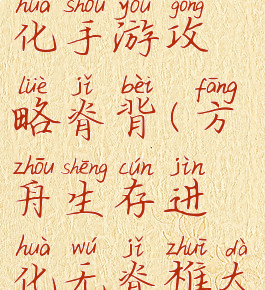 huà shǒu yóu gōng
化手游攻
lüè jǐ bèi fāng
略脊背(方
zhōu shēng cún jìn
舟生存进
huà wú jǐ zhuī dà
化无脊椎大